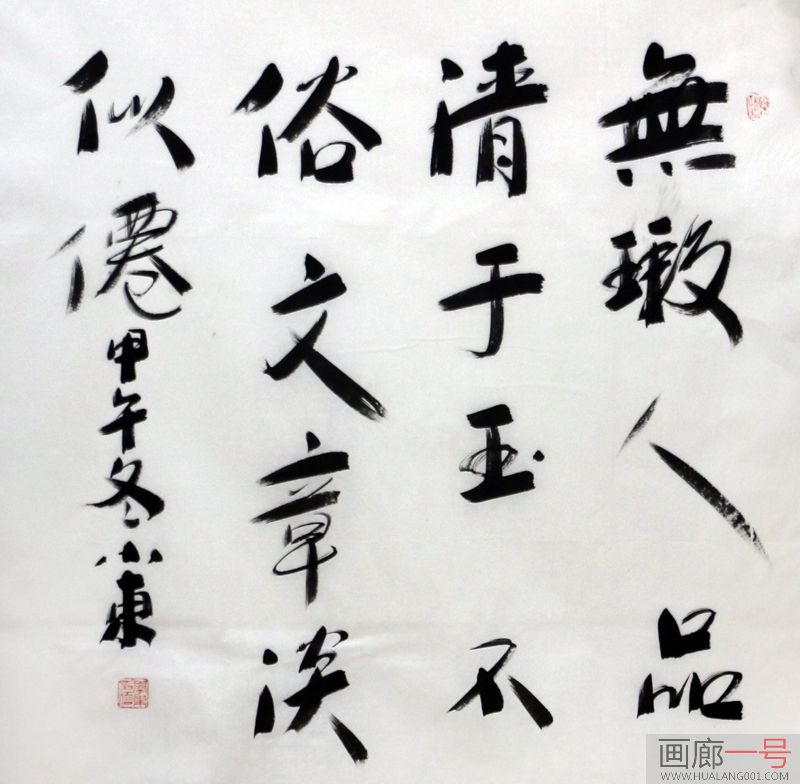 無瑕人品
清于玉不
俗文章淡
似僊甲午冬小東
画廊一号
WWW.HUALANG001.COM